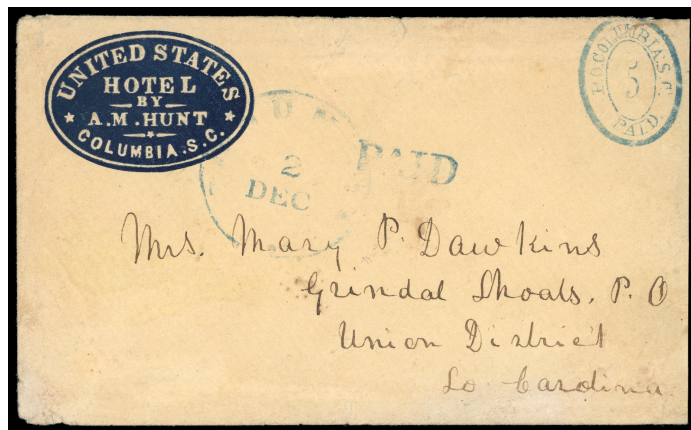 UNITED STATES
HOTEL
BY
A.M. HUNT
COLUMBIA.S.C.
P.O. COLUMBIA.S.C.
5
PAID.
2
DEC
PAID
Mrs. Mary P. Dawkins
Grindal Shoals, P. O
Union District
So. Carolina